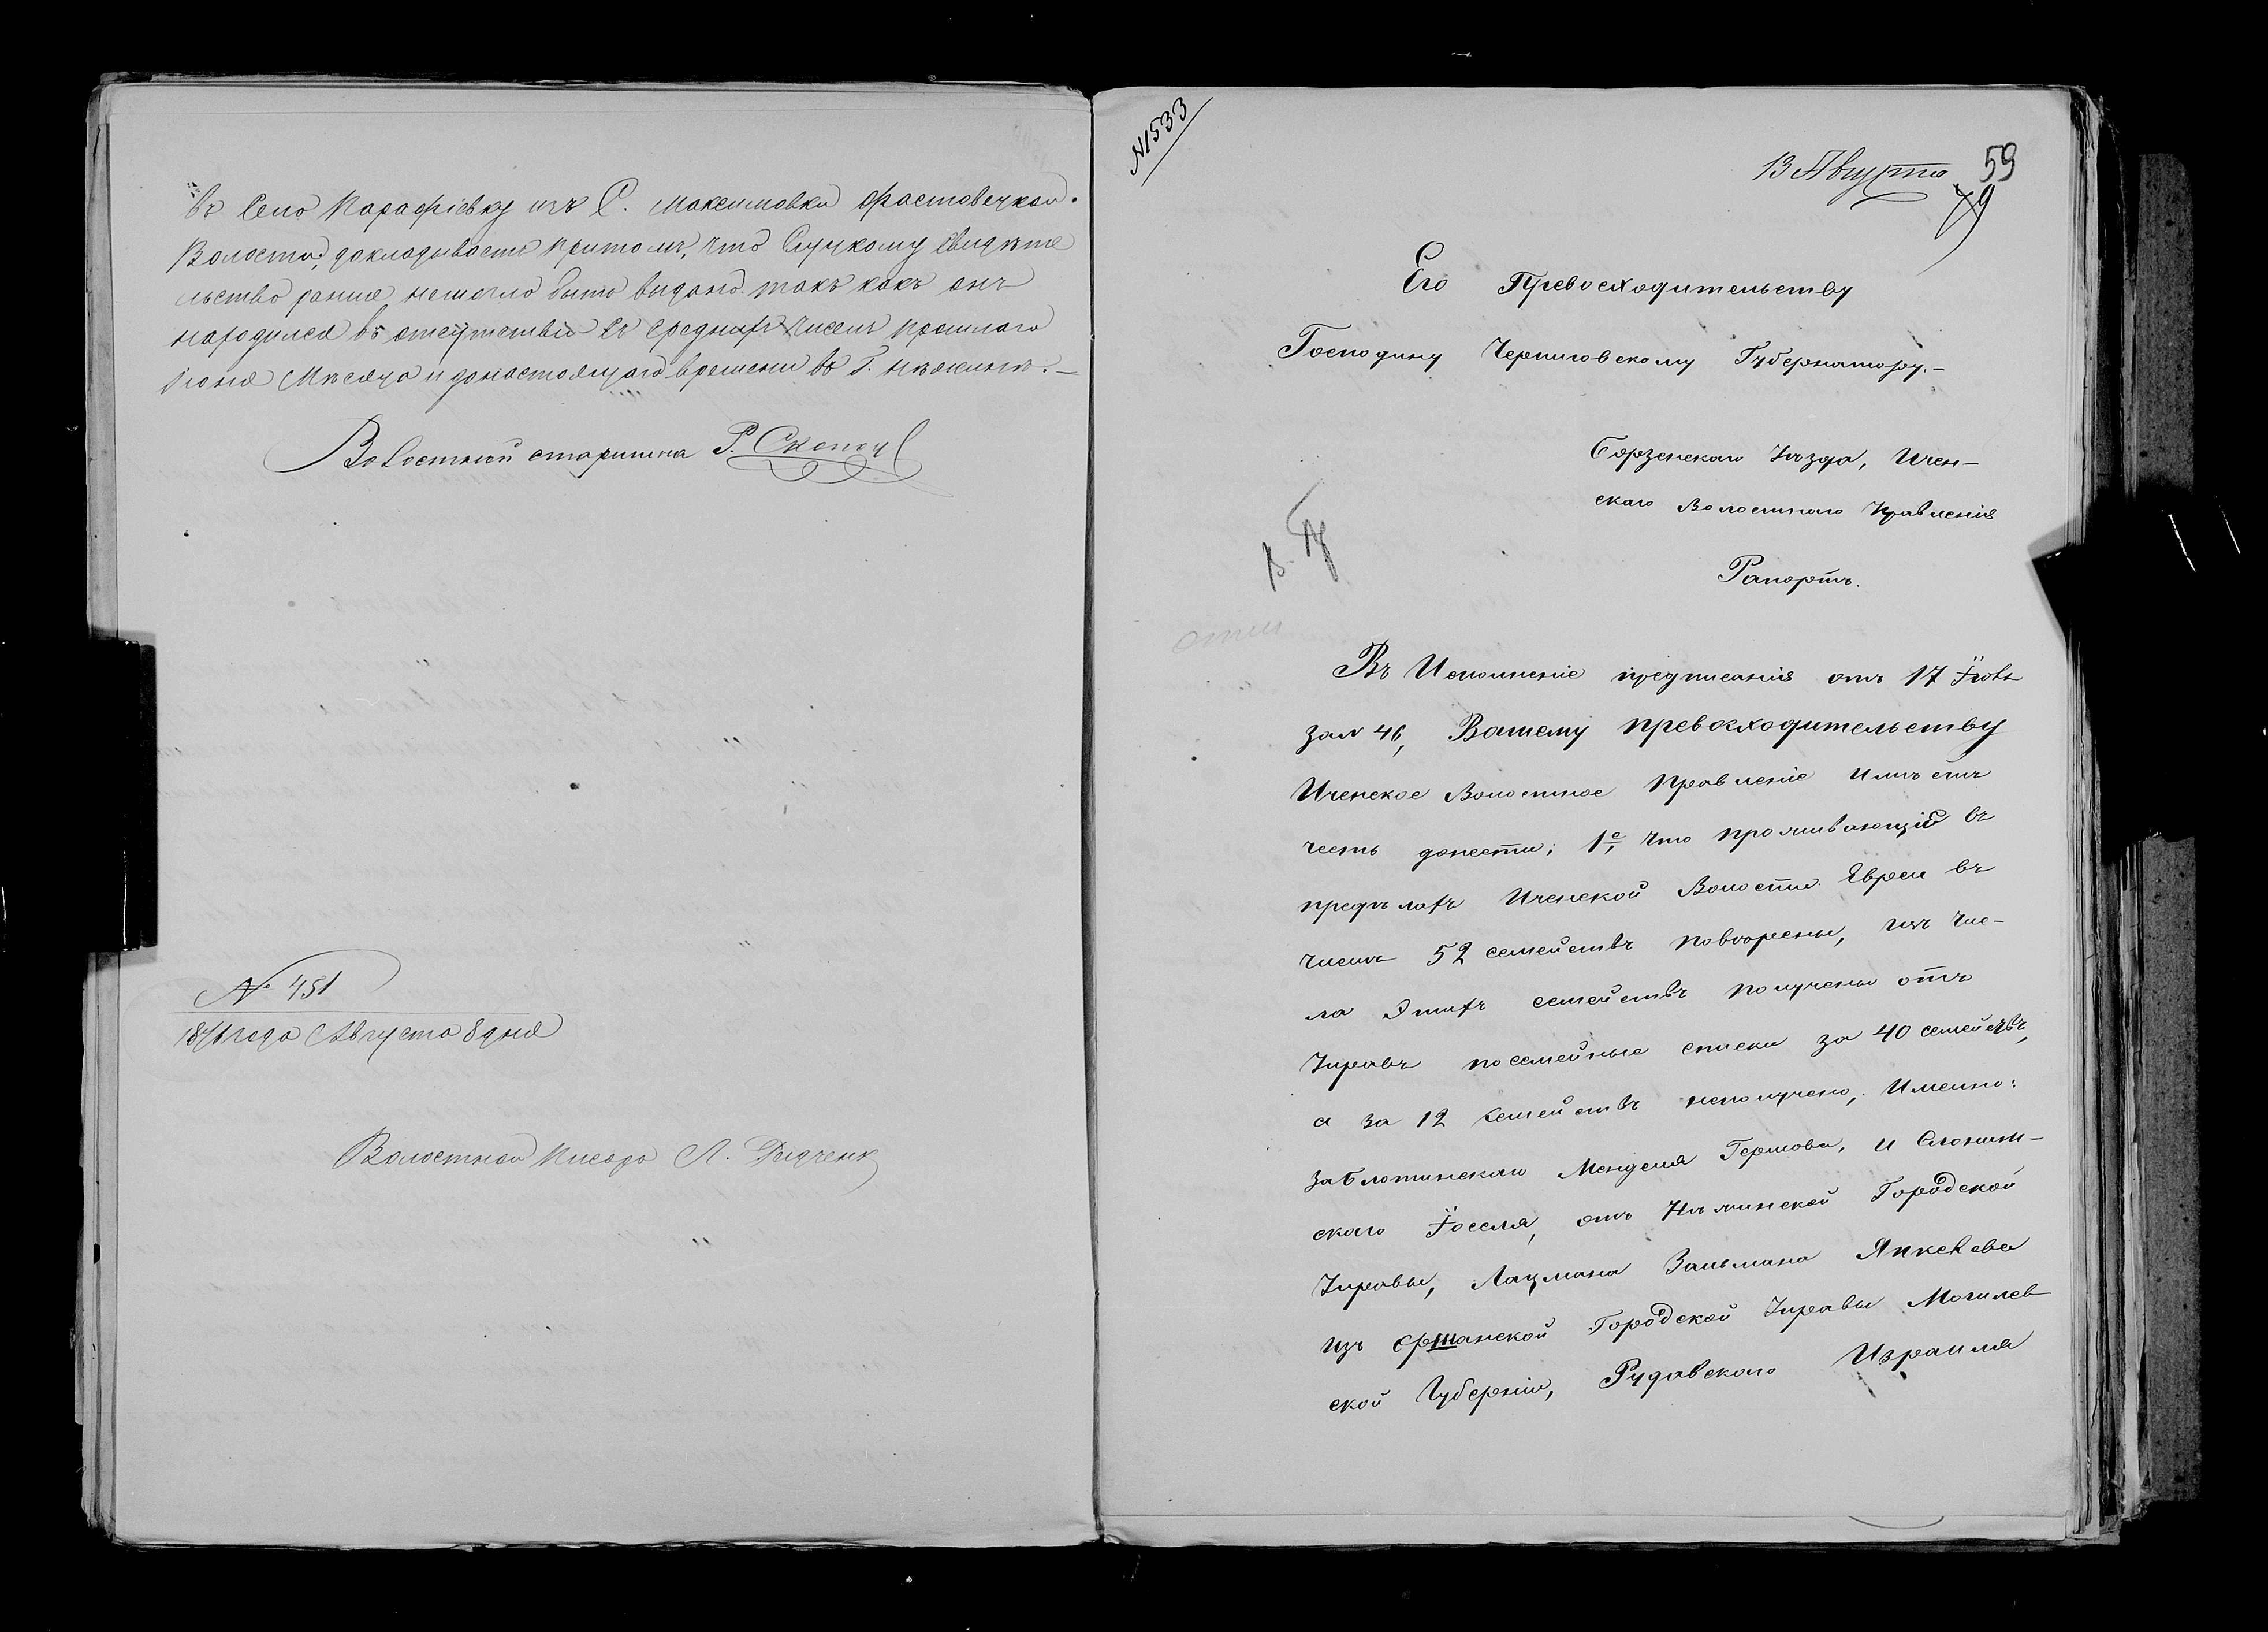 въ Село Парафіевку изъ С. Максимовки Фастовецкой
Волости, докладываетъ притомъ, что Слуцкому свидѣте
льство ранее немогло быть выдано такъ какъ онъ
находился въ отсутствіи съ среднихъ чиселъ прошлаго
Іюня Мѣсяца и донастоящаго времени въ Г. Нѣжинѣ. –
Волостной старшина Р.
№ 451
года Августа 8 дня
Волостной писарь Л.
№ 1533
13 Августа 59
79
Его Превосходительству
Господину Черниговскому Губернатору. –
Борзенскаго Уѣзда, Ичен-
скаго Волостнаго Правленія
Рапортъ.
Въ Исполненіе предписанія отъ 17
за № 46, Вашему превосходительству
Иченское Волостное Правленіе имѣетъ
честь донести; 1е, что проживающій въ
предѣлахъ Иченской Волости Евреи въ
числѣ 52 семействъ повѣрены, изъ чис-
ла этихъ семействъ получены отъ
Управъ посемейные списки за 40 семействъ,
а за 12 семействъ неполучено, Именно:
Заблотинскаго Менделя Гершова, и Слоним-
скаго Іоселя, отъ Нѣжинской Городской
Управы, Лацмана Зальмана Янкелева
изъ Оршанской Городской Управы Могилев
ской Губерніи, Рудавскаго Израиля